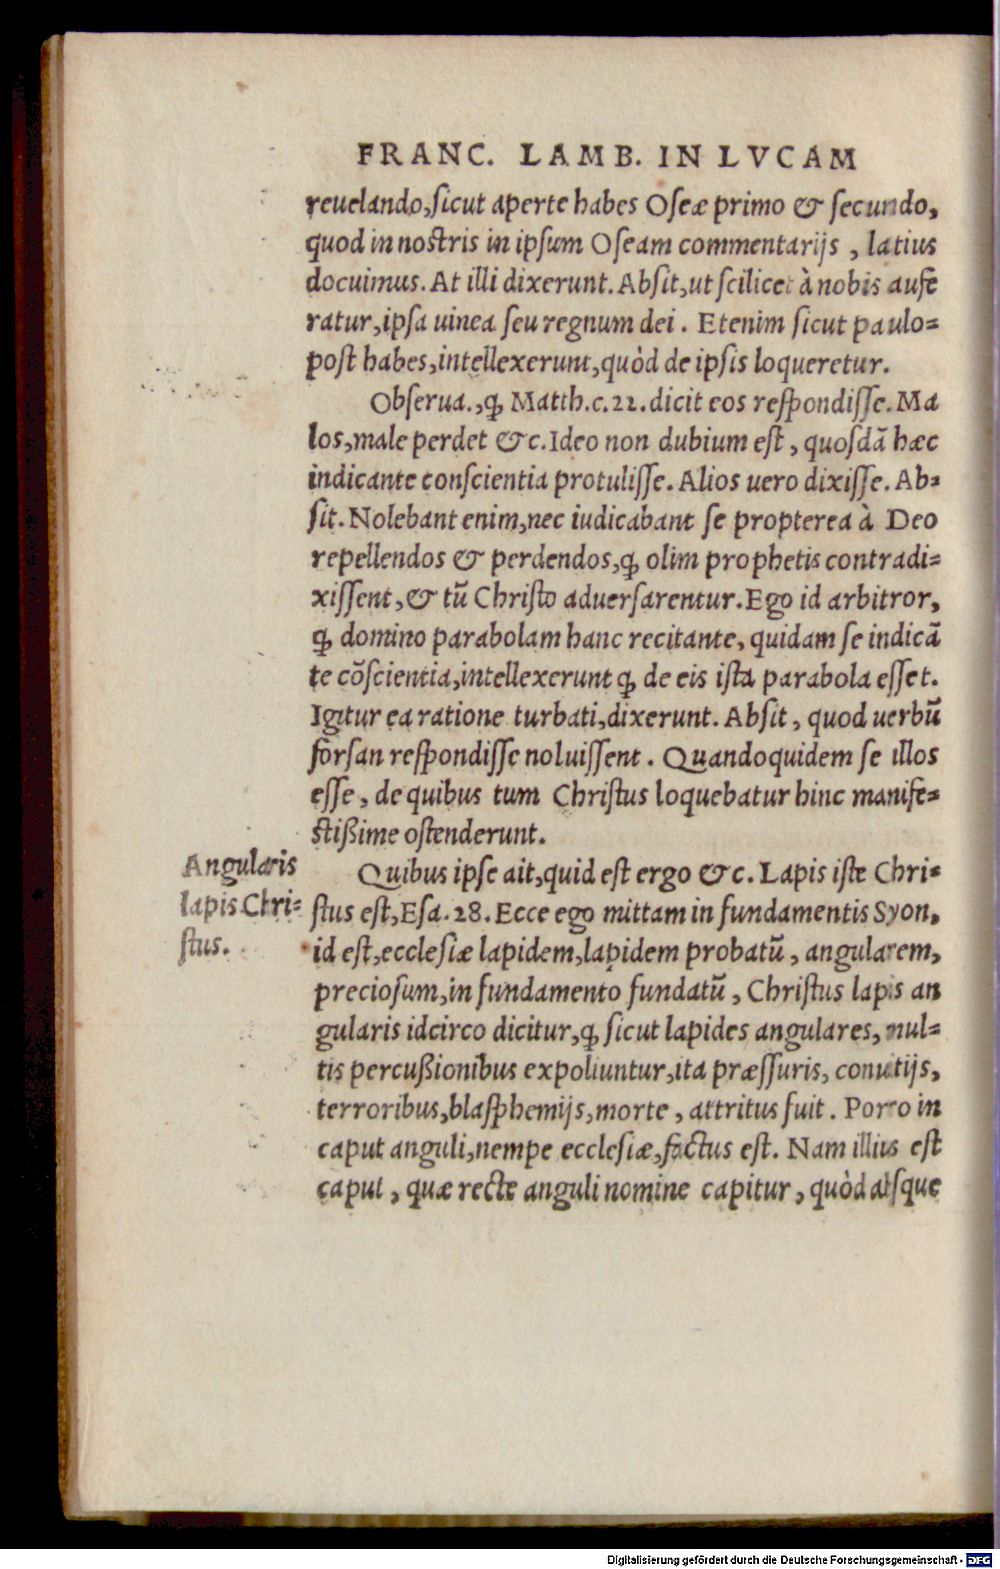 FRANC. LAMB. IN LVCAM
reuelando,ſicut aperte habes Oſeæ primo & ſecundo,
quod in noſtris in ipſum Oſeam commentarijs , latius
docuimus. At illi dixerunt. Abſit,ut ſcilicet à nobis aufe
ratur,ipſa uinea ſeu regnum dei . Etenim ſicut paulo=
poſt habes,intellexerunt,quòd de ipſis loqueretur.
Obſerua.,ꝙ Matth.c.22.dicit eos reſpondiſſe. Ma
los,male perdet &c.Ideo non dubium eſt , quoſdã hæc
indicante conſcientia protuliſſe. Alios uero dixiſſe. Ab=
ſit. Nolebant enim,nec iudicabant ſe propterea à Deo
repellendos & perdendos,ꝙ olim prophetis contradi=
xiſſent,& tũ Chriſto aduerſarentur.Ego id arbitror,
ꝙ domino parabolam hanc recitante, quidam ſe indicã
te cõſcientia,intellexerunt ꝙ de eis iſta parabola eſſet.
Igitur ea ratione turbati,dixerunt. Abſit , quod uerbũ
forſan reſpondiſſe noluiſſent . Quandoquidem ſe illos
eſſe , de quibus tum Chriſtus loquebatur hinc manife=
ſtißime oſtenderunt.
Angularis
lapis Chri=
ſtus.
Quibus ipſe ait,quid eſt ergo &c. Lapis iſte Chri=
ſtus eſt,Eſa. 28. Ecce ego mittam in fundamentis Syon,
id eſt,eccleſiæ lapidem,lapidem probatũ , angularem,
precioſum,in fundamento fundatũ , Chriſtus lapis an
gularis idcirco dicitur,ꝙ ſicut lapides angulares, mul=
tis percußionibus expoliuntur,ita præſſuris, conuitijs,
terroribus,blaſphemijs,morte , attritus fuit . Porro in
caput anguli,nempe eccleſiæ,factus eſt. Nam illius eſt
caput , quæ recte anguli nomine capitur , quòd abſque
Digitalisierung gefördert durch die Deutsche Forschungsgemeinschaft - DFG